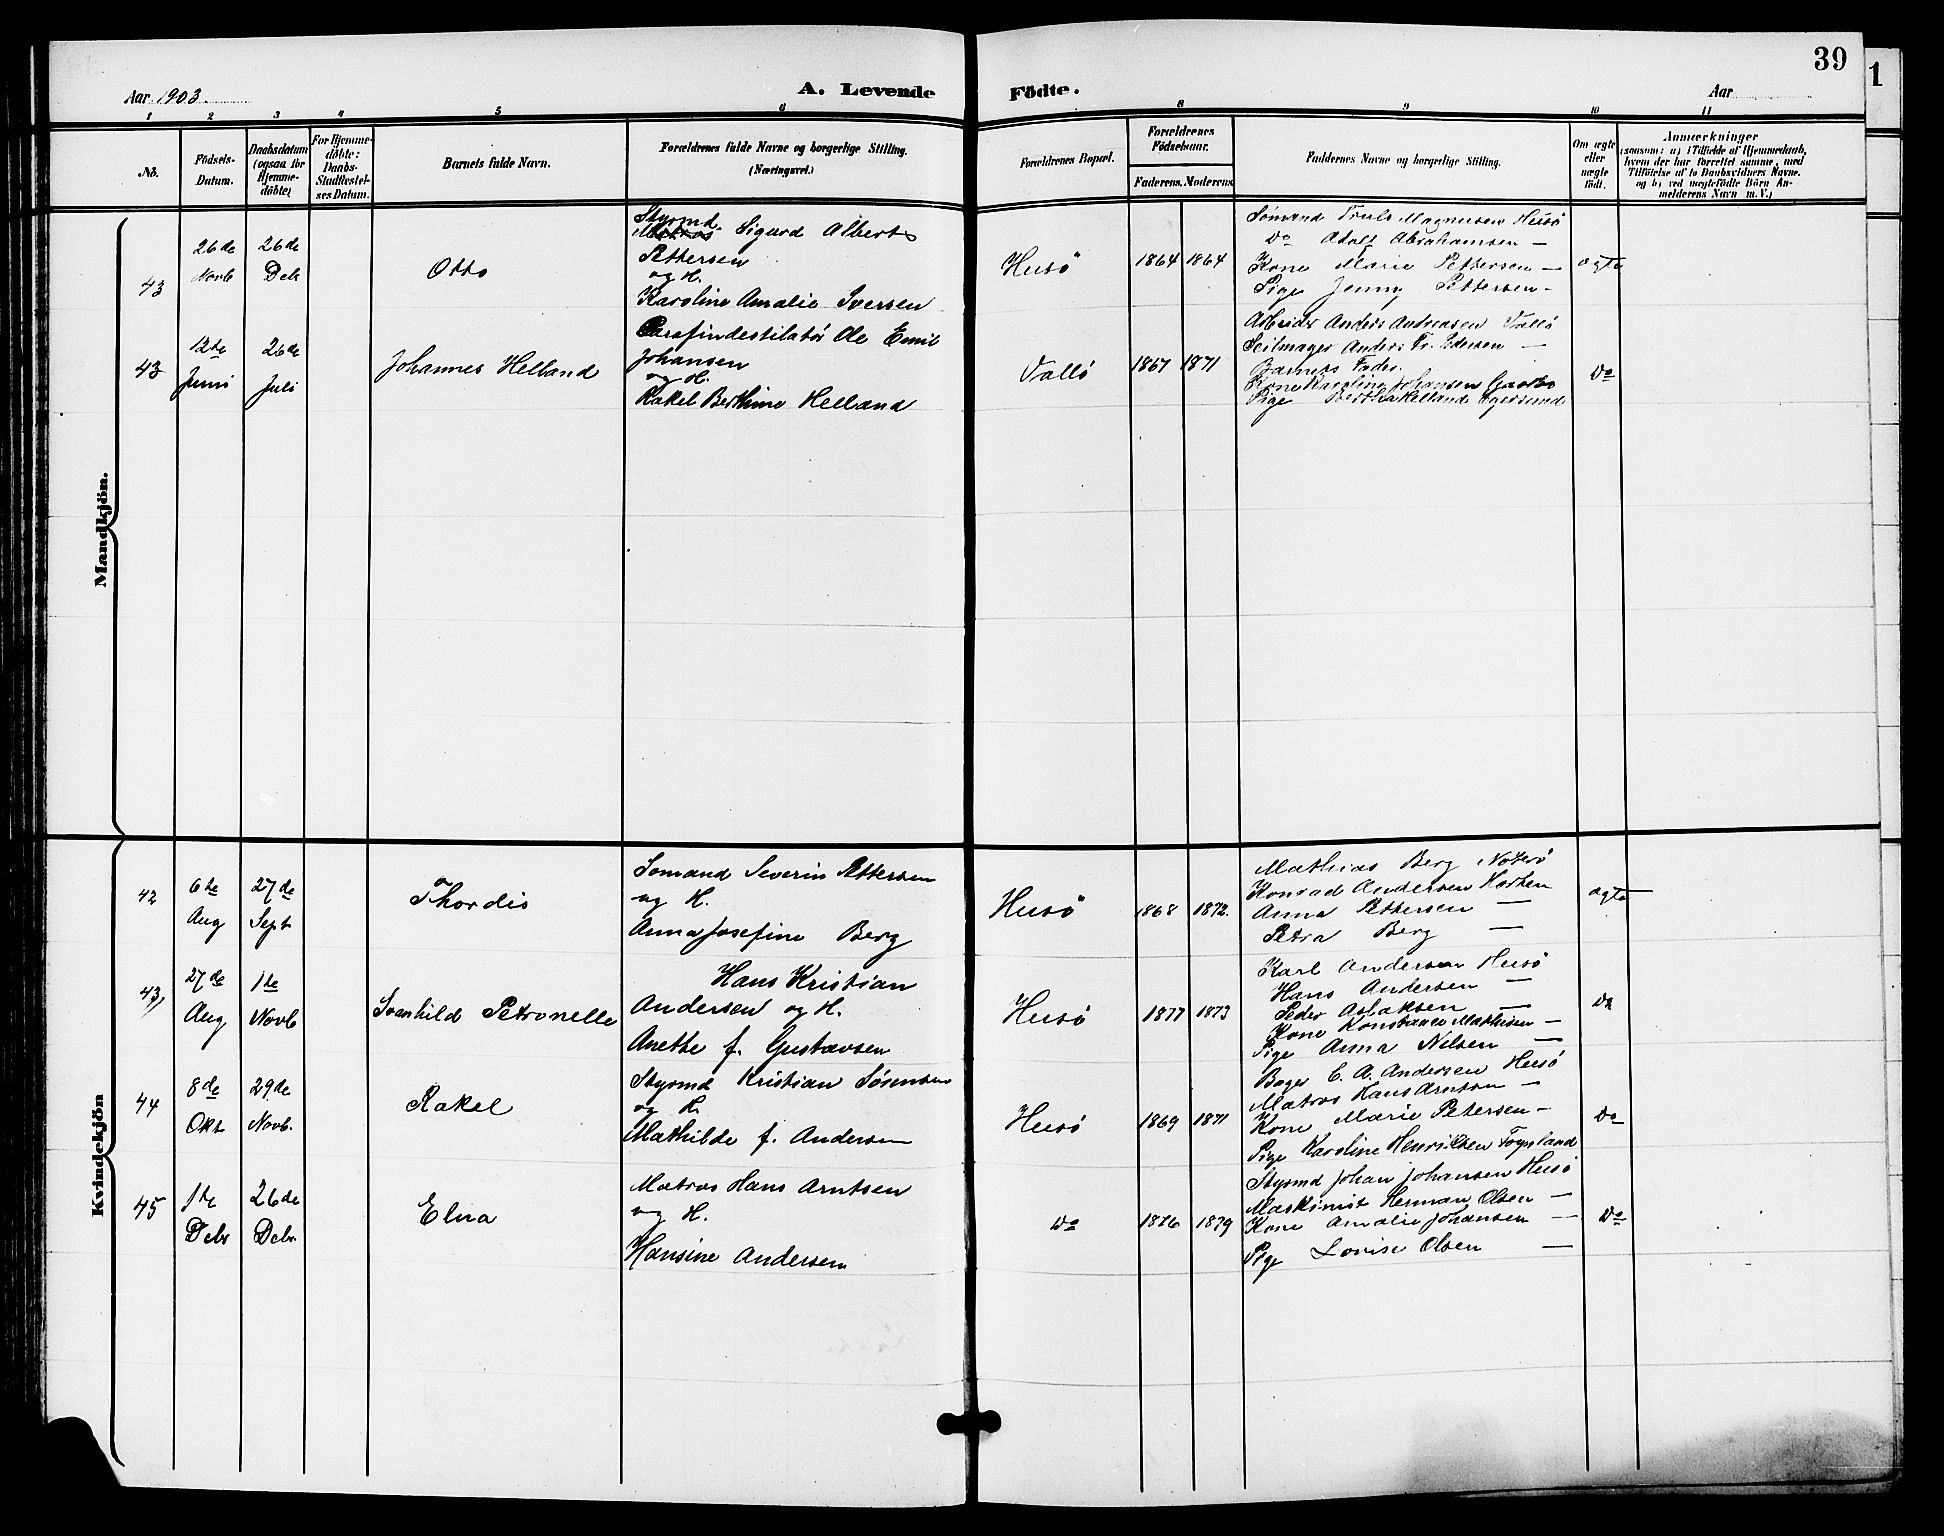 39
1
Aar 1903.
A. Levende
Födte.
Aar
1 2 3 4 5 6 8 9 10 11
No.
Födsels-Datum.
Daabsdatum (ogsaa for Hjemme-döbte)
For Hjemme-döbte: Daabs-Stadfæstel-ses Datum.
Barnets fulde Navn.
Forældrenes fulde Navne og borgerlige Stilling.
(Næringsvei.)
Forældrenes Bopæl.
Forældrenes Födselsaar.
Faderens. Moderens.
Faddernes Navne og borgerlige Stilling.
Om ægte eller uægte födt.
Anmærkninger
(saasom: a) i Tilfælde af Hjemmedaab,
hvem der har forrettet samme, med
Tilföielse af to Daabsvidners Navne.
og b) ved uægtefödte Börn An-
melderens Navn m. V.)
Mandkjön.
43
26de Novb
26de Debr
Otto
Styrmd.
Matros Sigurd Albert
Pettersen
og H.
Karoline Amalie Iversen
Husö
1864 1864
Sömand Truls Magnussen Husö
Do Adolf Abrahamsen —
Kone Marie Pettersen —
Pige Jenny Pettersen —
ægte
43
12te Juni
26de Juli
Johannes Helland
Parafindestilatör Ole Emil
Johansen
og H.
Rakel Berthine Helland
Vallö
1867 1871
Arbeider Anders Andreasen Vallö
Seilmager Anders Fr. Pedersen —
Barnets Fader.
Kone Karoline Johansen
Pige Bertha Helland Egersund
Do
Kvindekjön
42
6te Aug
27de Sept
Thordis
Sömand Severin Pettersen
og H.
Anna Josefine Berg
Husö
1868 1872.
Mathias Berg Nöterö
Konrad Andersen Horten
Anna Pettersen —
Petra Berg —
ægte
43,
27de Aug
1te Novb
Svanhild Petronelle
Hans Kristian
Andersen og H.
Anethe f. Gustavsen
Husö
1877 1873
Karl Andersen Husö
Hans Andersen —
Peder Aslaksen —
Kone Konstance Mathisen —
Pige Anna Nilsen —
Do
44
8de Okt
29de Novb.
Rakel
Styrmd Kristian Sörensen
og H.
Mathilde f. Andersen
Husö
1869 1871
Bager C. A. Andersen Husö
Matros Hans Arntsen —
Kone Marie Petersen —
Pige Karoline Henriksen Toynland
Do
45
1te Debr
26de Debr
Elna
Matros Hans Arntsen
og H.
Hansine Andersen
Do
1876 1879
Styrmd Johan Johansen Husö
Maskinist Herman Olsen —
Kone Amalie Johansen —
Pige Lovise Olsen —
Do